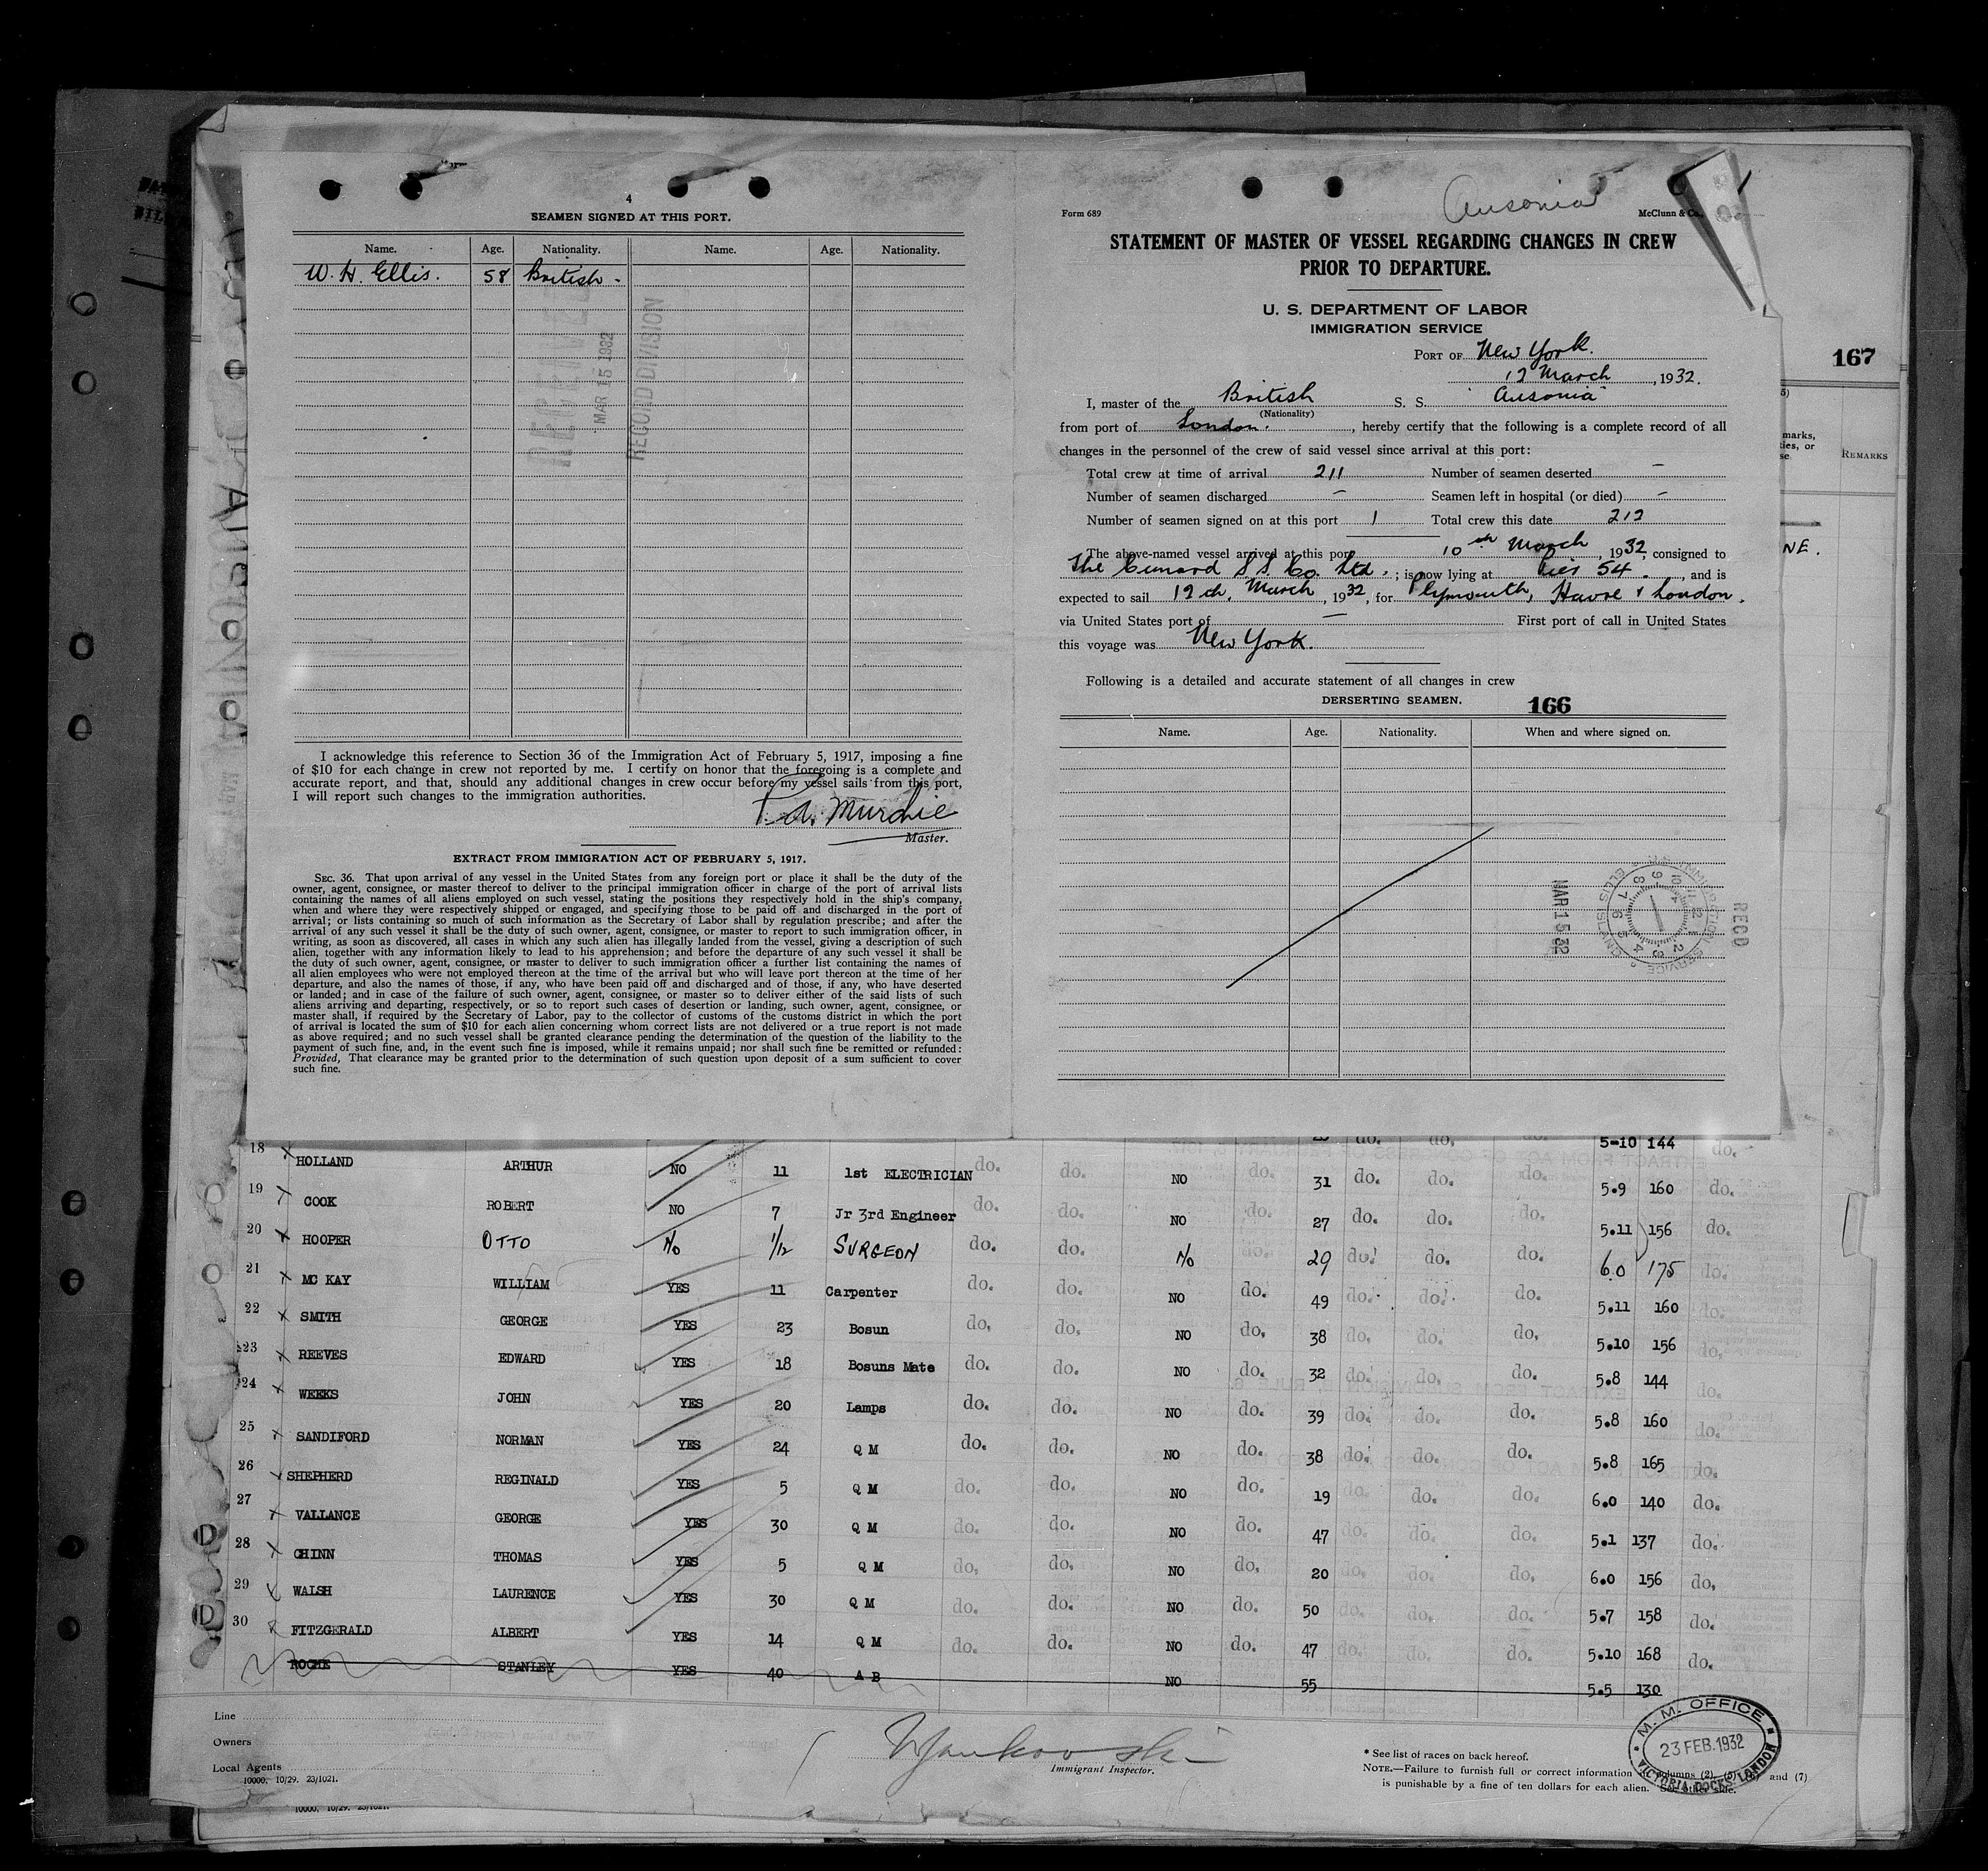 4
SEAMEN SIGNED AT THIS PORT.
Name. Age. Nationality. Name. Age. Nationality.
W. H. Ellis. 58 British -
RECEIVED
MAR 15 1932
RECORD DIVISION
I acknowledge this reference to Section 36 of the Immigration Act of February 5, 1917, imposing a fine
of $10 for each change in crew not reported by me. I certify on honor that the foregoing is a complete and
accurate report, and that, should any additional changes in crew occur before my vessel sails from this port,
I will report such changes to the immigration authorities.
P. A. Murchie
Master.
EXTRACT FROM IMMIGRATION ACT OF FEBRUARY 5, 1917.
SEC. 36. That upon arrival of any vessel in the United States from any foreign port or place it shall be the duty of the
owner, agent, consignee, or master thereof to deliver to the principal immigration officer in charge of the port of arrival lists
containing the names of all aliens employed on such vessel, stating the positions they respectively hold in the ship's company,
when and where they were respectively shipped or engaged, and specifying those to be paid off and discharged in the port of
arrival; or lists containing so much of such information as the Secretary of Labor shall by regulation prescribe; and after the
arrival of any such vessel it shall be the duty of such owner, agent, consignee, or master to report to such immigration officer, in
writing, as soon as discovered, all cases in which any such alien has illegally landed from the vessel, giving a description of such
alien, together with any information likely to lead to his apprehension; and before the departure of any such vessel it shall be
the duty of such owner, agent, consignee, or master to deliver to such immigration officer a further list containing the names of
all alien employees who were not employed thereon at the time of the arrival but who will leave port thereon at the time of her
departure, and also the names of those, if any, who have been paid off and discharged and of those, if any, who have deserted
or landed; and in case of the failure of such owner, agent, consignee, or master so to deliver either of the said lists of such
aliens arriving and departing, respectively, or so to report such cases of desertion or landing, such owner, agent, consignee, or
master shall, if required by the Secretary of Labor, pay to the collector of customs of the customs district in which the port
of arrival is located the sum of $10 for each alien concerning whom correct lists are not delivered or a true report is not made
as above required; and no such vessel shall be granted clearance pending the determination of the question of the liability to the
payment of such fine, and, in the event such fine is imposed, while it remains unpaid; nor shall such fine be remitted or refunded:
Provided, That clearance may be granted prior to the determination of such question upon deposit of a sum sufficient to cover
such fine.
Ausonia
Form 689 McClunn & Co.
STATEMENT OF MASTER OF VESSEL REGARDING CHANGES IN CREW
PRIOR TO DEPARTURE.
U. S. DEPARTMENT OF LABOR
IMMIGRATION SERVICE
PORT OF New York.
12 March, 1932.
I, master of the British S. S. "Ausonia"
(Nationality)
from port of London., hereby certify that the following is a complete record of all
changes in the personnel of the crew of said vessel since arrival at this port:
Total crew at time of arrival 211 Number of seamen deserted —
Number of seamen discharged — Seamen left in hospital (or died) —
Number of seamen signed on at this port 1 Total crew this date 212
The above-named vessel arrived at this port 10th March, 1932, consigned to
The Cunard S.S. Co. Ltd.; is now lying at Pier 54., and is
expected to sail 12th. March, 1932, for Plymouth, Havre & London.
via United States port of — First port of call in United States
this voyage was New York.
Following is a detailed and accurate statement of all changes in crew
DERSERTING SEAMEN. 166
Name. Age. Nationality. When and where signed on.
RECD
MAR 15 32
167
marks,
ties, or
se
REMARKS
NE.
do. do. 5-10 144 do.
18 HOLLAND ARTHUR NO 11 1st ELECTRICIAN do. do. NO do. 31 do. do. do. 5.9 160 do.
19 COOK ROBERT NO 7 Jr 3rd Engineer do. do. NO do. 27 do. do. do. 5.11 156 do.
20 HOOPER OTTO No 1/12 SURGEON do. do. No do. 29 do. do. do. 6.0 175 do.
21 MC KAY WILLIAM YES 11 Carpenter do. do. NO do. 49 do. do. do. 5.11 160 do.
22 SMITH GEORGE YES 23 Bosun do. do. NO do. 38 do. do. do. 5.10 156 do.
23 REEVES EDWARD YES 18 Bosuns Mate do. do. NO do. 32 do. do. do. 5.8 144 do.
24 WEEKS JOHN YES 20 Lamps do. do. NO do. 39 do. do. do. 5.8 160 do.
25 SANDIFORD NORMAN YES 24 Q M do. do. NO do. 38 do. do. do. 5.8 165 do.
26 SHEPHERD REGINALD YES 5 Q M do. do. NO do. 19 do. do. do. 6.0 140 do.
27 VALLANCE GEORGE YES 30 Q M do. do. NO do. 47 do. do. do. 5.1 137 do.
28 CHINN THOMAS YES 5 Q M do. do. NO do. 20 do. do. do. 6.0 156 do.
29 WALSH LAURENCE YES 30 Q M do. do. NO do. 50 do. do. do. 5.7 158 do.
30 FITZGERALD ALBERT YES 14 Q M do. do. NO do. 47 do. do. do. 5.10 168 do.
ROCHE STANLEY YES 40 A B NO 55 5.5 130
Line
Owners
Local Agents
10000, 10/29. 23/1021.
Immigrant Inspector.
* See list of races on back hereof.
NOTE.—Failure to furnish full or correct information columns (2), and (7)
is punishable by a fine of ten dollars for each alien. See other side.
M. M. OFFICE
23 FEB. 1932
VICTORIA DOCKS LONDON
10000, 10/29. 23/1021.